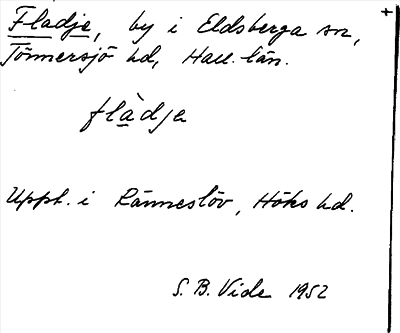 Fladje, by i Eldsberga sn,
Tönnersjö hd, Hall. län.
flàdje
Uppt. i Ränneslöv, Höks hd.
S. B. Vide 1952